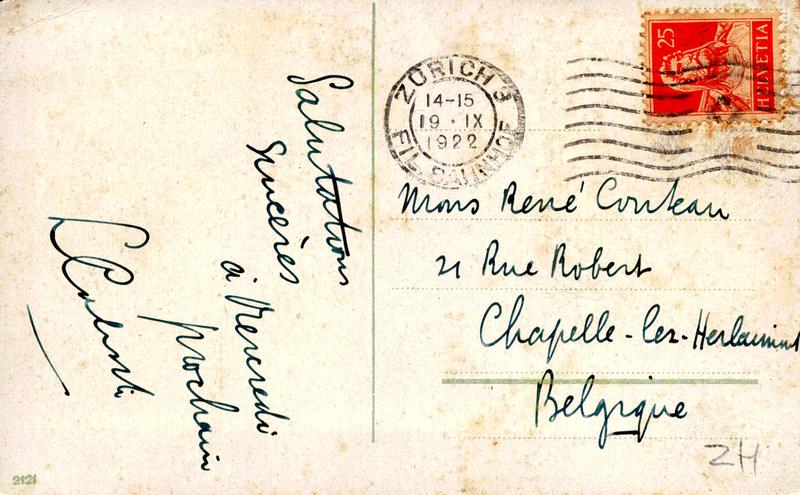 Salutations
sincères
à Mercredi
prochain
ZÜRICH 3
14-15
19 · IX
1922
FIL. BAHNHOF
25
HELVETIA
Mons René Couteau
21 Rue Robert
Chapelle-lez-Herlaimont
Belgique
ZH
2121